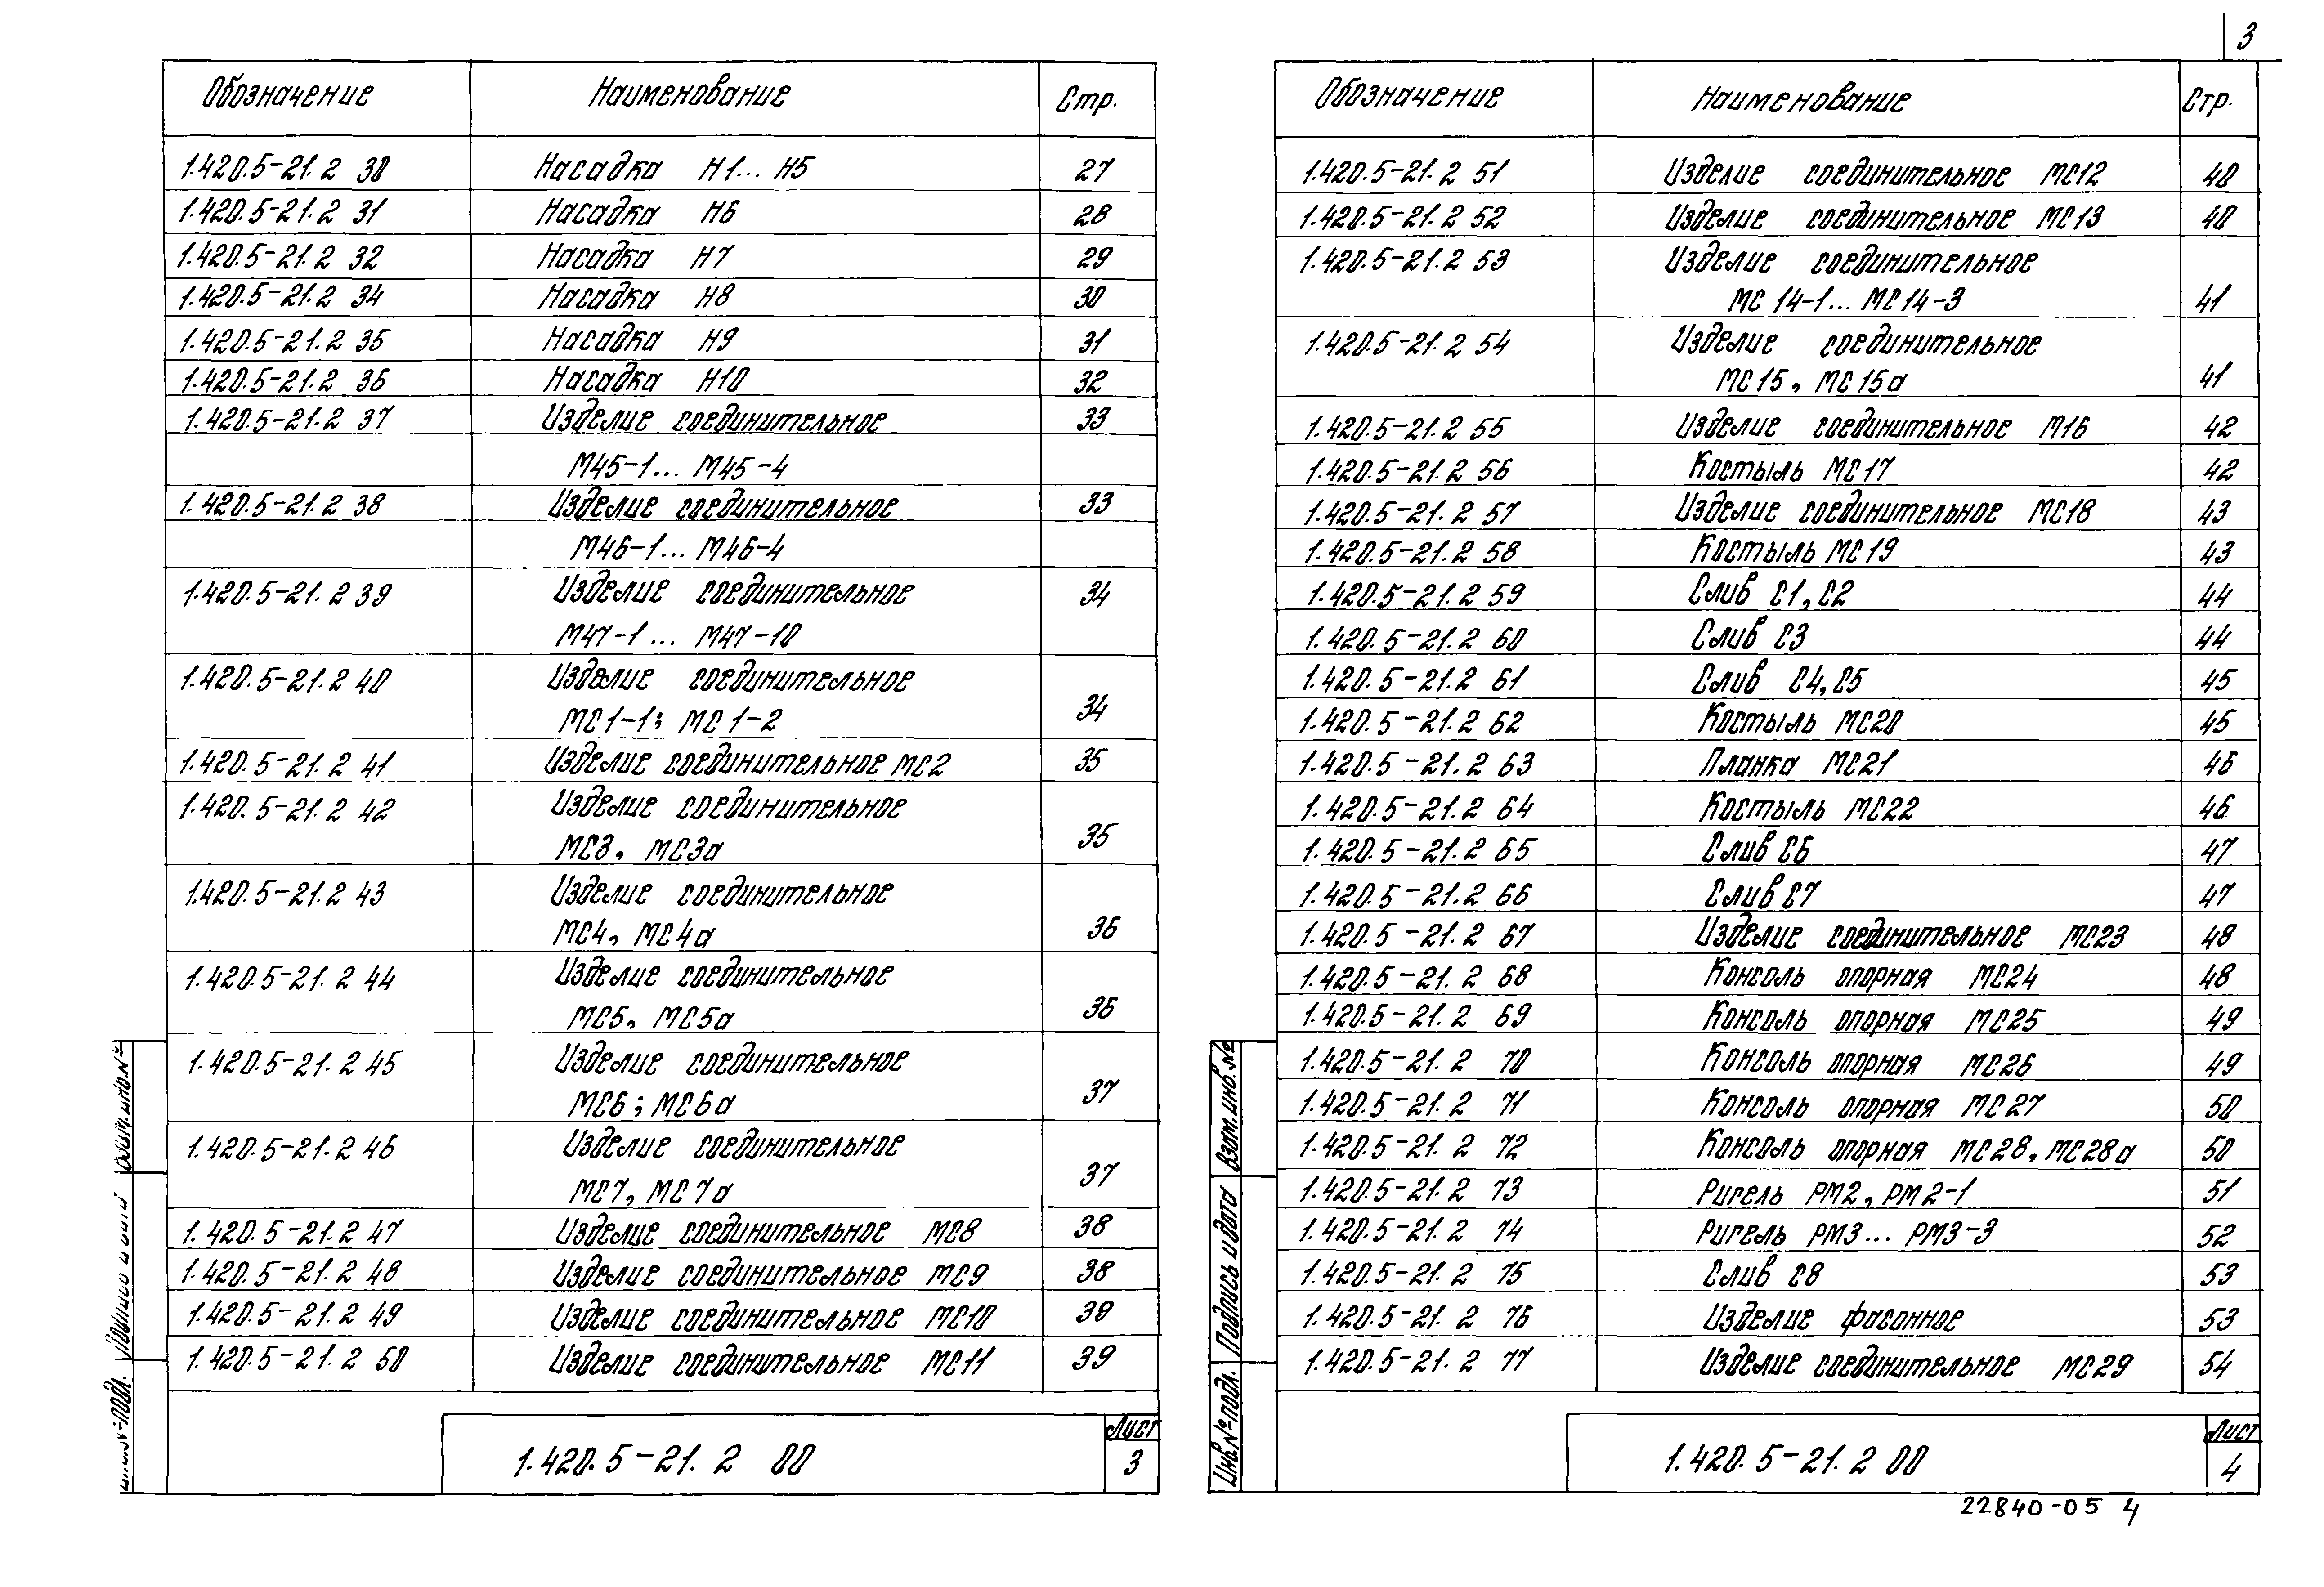 3
Обозначение Наименование Стр.
1.420.5-21.2 30 Насадка Н1... Н5 27
1.420.5-21.2 31 Насадка Н6 28
1.420.5-21.2 32 Насадка Н7 29
1.420.5-21.2 34 Насадка Н8 30
1.420.5-21.2 35 Насадка Н9 31
1.420.5-21.2 36 Насадка Н10 32
1.420.5-21.2 37 Изделие соединительное 33
М45-1... М45-4
1.420.5-21.2 38 Изделие соединительное 33
М46-1... М46-4
1.420.5-21.2 39 Изделие соединительное 34
М47-1... М47-10
1.420.5-21.2 40 Изделие соединительное
МС1-1; МС1-2 34
1.420.5-21.2 41 Изделие соединительное МС2 35
1.420.5-21.2 42 Изделие соединительное
МС3, МС3а 35
1.420.5-21.2 43 Изделие соединительное
МС4, МС4а 36
1.420.5-21.2 44 Изделие соединительное
МС5, МС5а 36
1.420.5-21.2 45 Изделие соединительное
МС6; МС6а 37
1.420.5-21.2 46 Изделие соединительное
МС7, МС7а 37
1.420.5-21.2 47 Изделие соединительное МС8 38
1.420.5-21.2 48 Изделие соединительное МС9 38
1.420.5-21.2 49 Изделие соединительное МС10 39
1.420.5-21.2 50 Изделие соединительное МС11 39
1.420.5-21.2 00
Лист
3
Обозначение Наименование Стр.
1.420.5-21.2 51 Изделие соединительное МС12 40
1.420.5-21.2 52 Изделие соединительное МС13 40
1.420.5-21.2 53 Изделие соединительное
МС 14-1... МС14-3 41
1.420.5-21.2 54 Изделие соединительное
МС15, МС15а 41
1.420.5-21.2 55 Изделие соединительное М16 42
1.420.5-21.2 56 Костыль МС17 42
1.420.5-21.2 57 Изделие соединительное МС18 43
1.420.5-21.2 58 Костыль МС19 43
1.420.5-21.2 59 Слив С1, С2 44
1.420.5-21.2 60 Слив С3 44
1.420.5-21.2 61 Слив С4, С5 45
1.420.5-21.2 62 Костыль МС20 45
1.420.5-21.2 63 Планка МС21 46
1.420.5-21.2 64 Костыль МС22 46
1.420.5-21.2 65 Слив С6 47
1.420.5-21.2 66 Слив С7 47
1.420.5-21.2 67 Изделие соединительное МС23 48
1.420.5-21.2 68 Консоль опорная МС24 48
1.420.5-21.2 69 Консоль опорная МС25 49
1.420.5-21.2 70 Консоль опорная МС26 49
1.420.5-21.2 71 Консоль опорная МС27 50
1.420.5-21.2 72 Консоль опорная МС28, МС28а 50
1.420.5-21.2 73 Ригель РМ2, РМ2-1 51
1.420.5-21.2 74 Ригель РМ3... РМ3-3 52
1.420.5-21.2 75 Слив С8 53
1.420.5-21.2 76 Изделие фасонное 53
1.420.5-21.2 77 Изделие соединительное МС29 54
Взам.инв.№
Подпись и дата
Инв.№подл.
1.420.5-21.2 00
Лист
4
22840-05 4